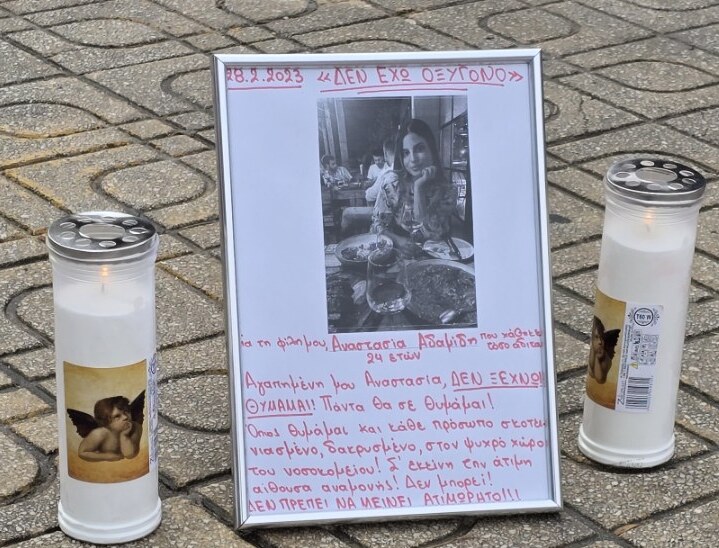 28.2.2023 «ΔΕΝ ΕΧΩ ΟΞΥΓΟΝΟ»
ια τη φίλη μου, Αναστασία Αδαμίδη που χάθηκε
τόσο άδικα
24 ετών
Αγαπημένη μου Αναστασία, ΔΕΝ ΞΕΧΝΩ!
ΘΥΜΑΜΑΙ! Πάντα θα σε θυμάμαι!
Όπως θυμάμαι και κάθε πρόσωπο σκοτει
νιασμένο, δακρυσμένο, στον ψυχρό χώρο
του νοσοκομείου! Σ' εκείνη την άτιμη
αίθουσα αναμονής! Δεν μπορεί!
ΔΕΝ ΠΡΕΠΕΙ ΝΑ ΜΕΙΝΕΙ ΑΤΙΜΩΡΗΤΟ!!!